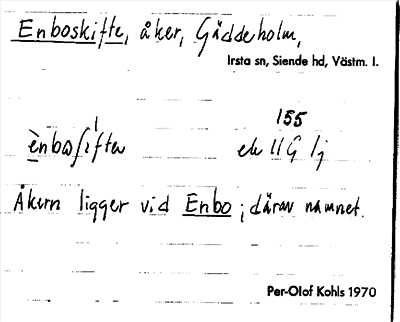 Enboskifte, åker, Gäddeholm,
Irsta sn, Siende hd, Västm. l.
155
ènboʃìfta ek 11G lj
Åkern ligger vid Enbo; därav namnet.
Per-Olof Kohls 1970